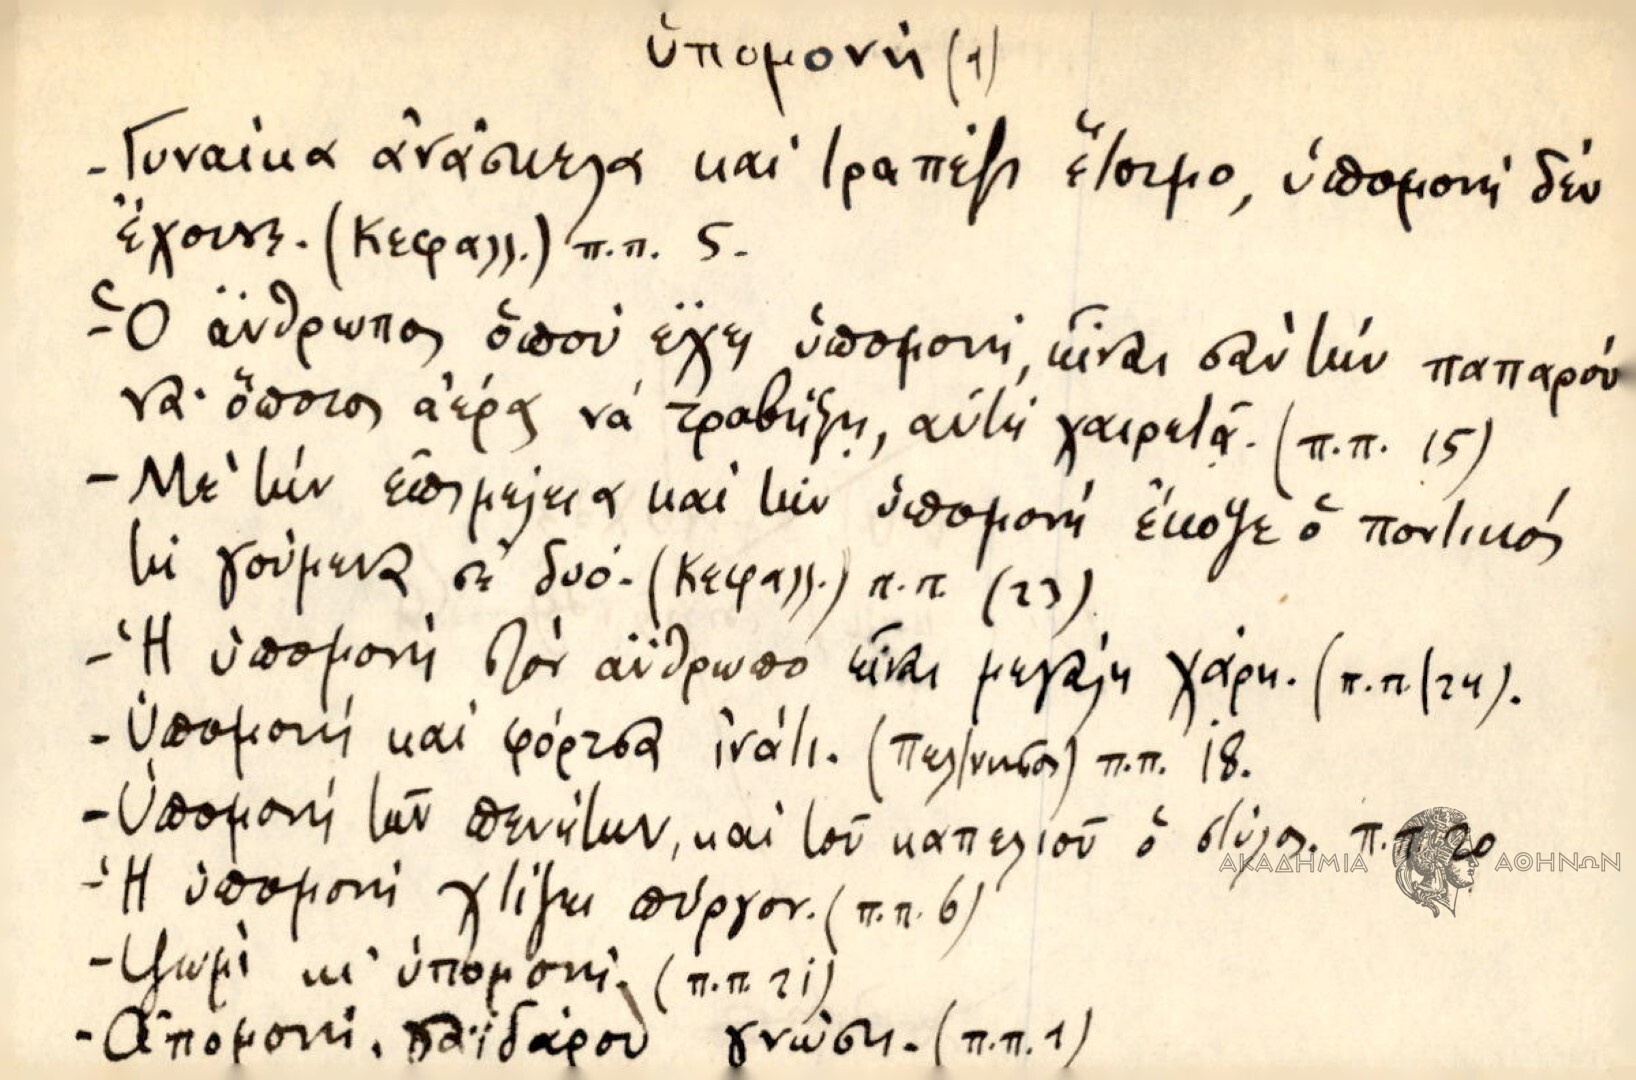 ὑπομονή (1)
- Γυναίκα ἀνάσκελα καί τραπέζι ἕτοιμο, ὑπομονή δέν
ἔχουνε. (Κεφαλλ.) π.π. 5.
- Ὁ ἄνθρωπος ὁποὺ ἔχει ὑπομονή, εἶναι σάν τήν παπαρού
να· ὅποιος ἀέρας νά τραβήξῃ, αὐτή χαιρετᾷ. (π.π. 15)
- Μέ τήν ἐπιμέλεια καί τήν ὑπομονή ἔκοψε ὁ ποντικός
τή γούμενα σέ δυό. (Κεφαλλ.) π.π. (23)
- Ἡ ὑπομονή στόν ἄνθρωπο εἶναι μεγάλη χάρη. (π.π. 24).
- Ὑπομονή καί φόρτσα ἰνάτι. (Πελ/νησος) π.π. 18.
- Ὑπομονή τῶν πενήτων, καί τοῦ καπελιοῦ ὁ στύλος. π.π. 20
- Ἡ ὑπομονή χτίζει πύργον. (π.π. 6)
- Ψωμί κι' ὑπομονή. (π.π. 21)
- Ἀπομονή, γαϊδάρου γνώση. (π.π. 1)
ΑΚΑΔΗΜΙΑ ΑΘΗΝΩΝ